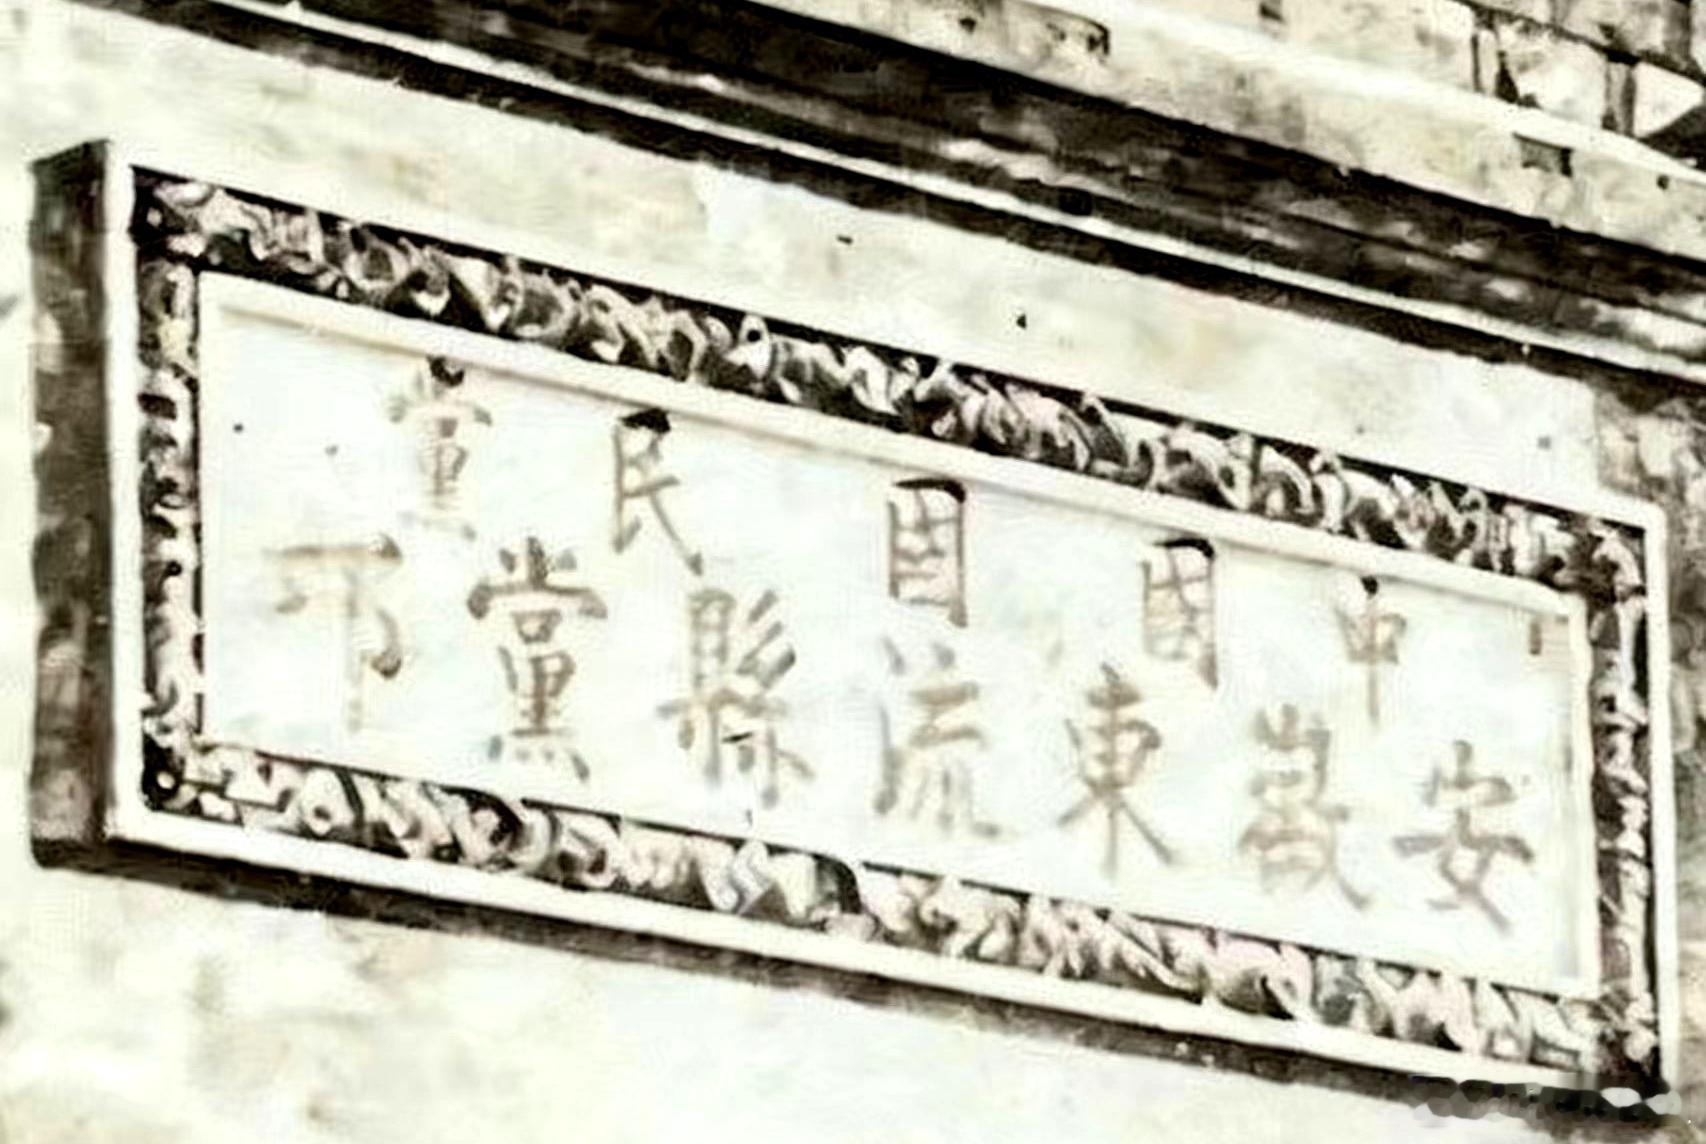 中國國民黨
安徽東流縣黨